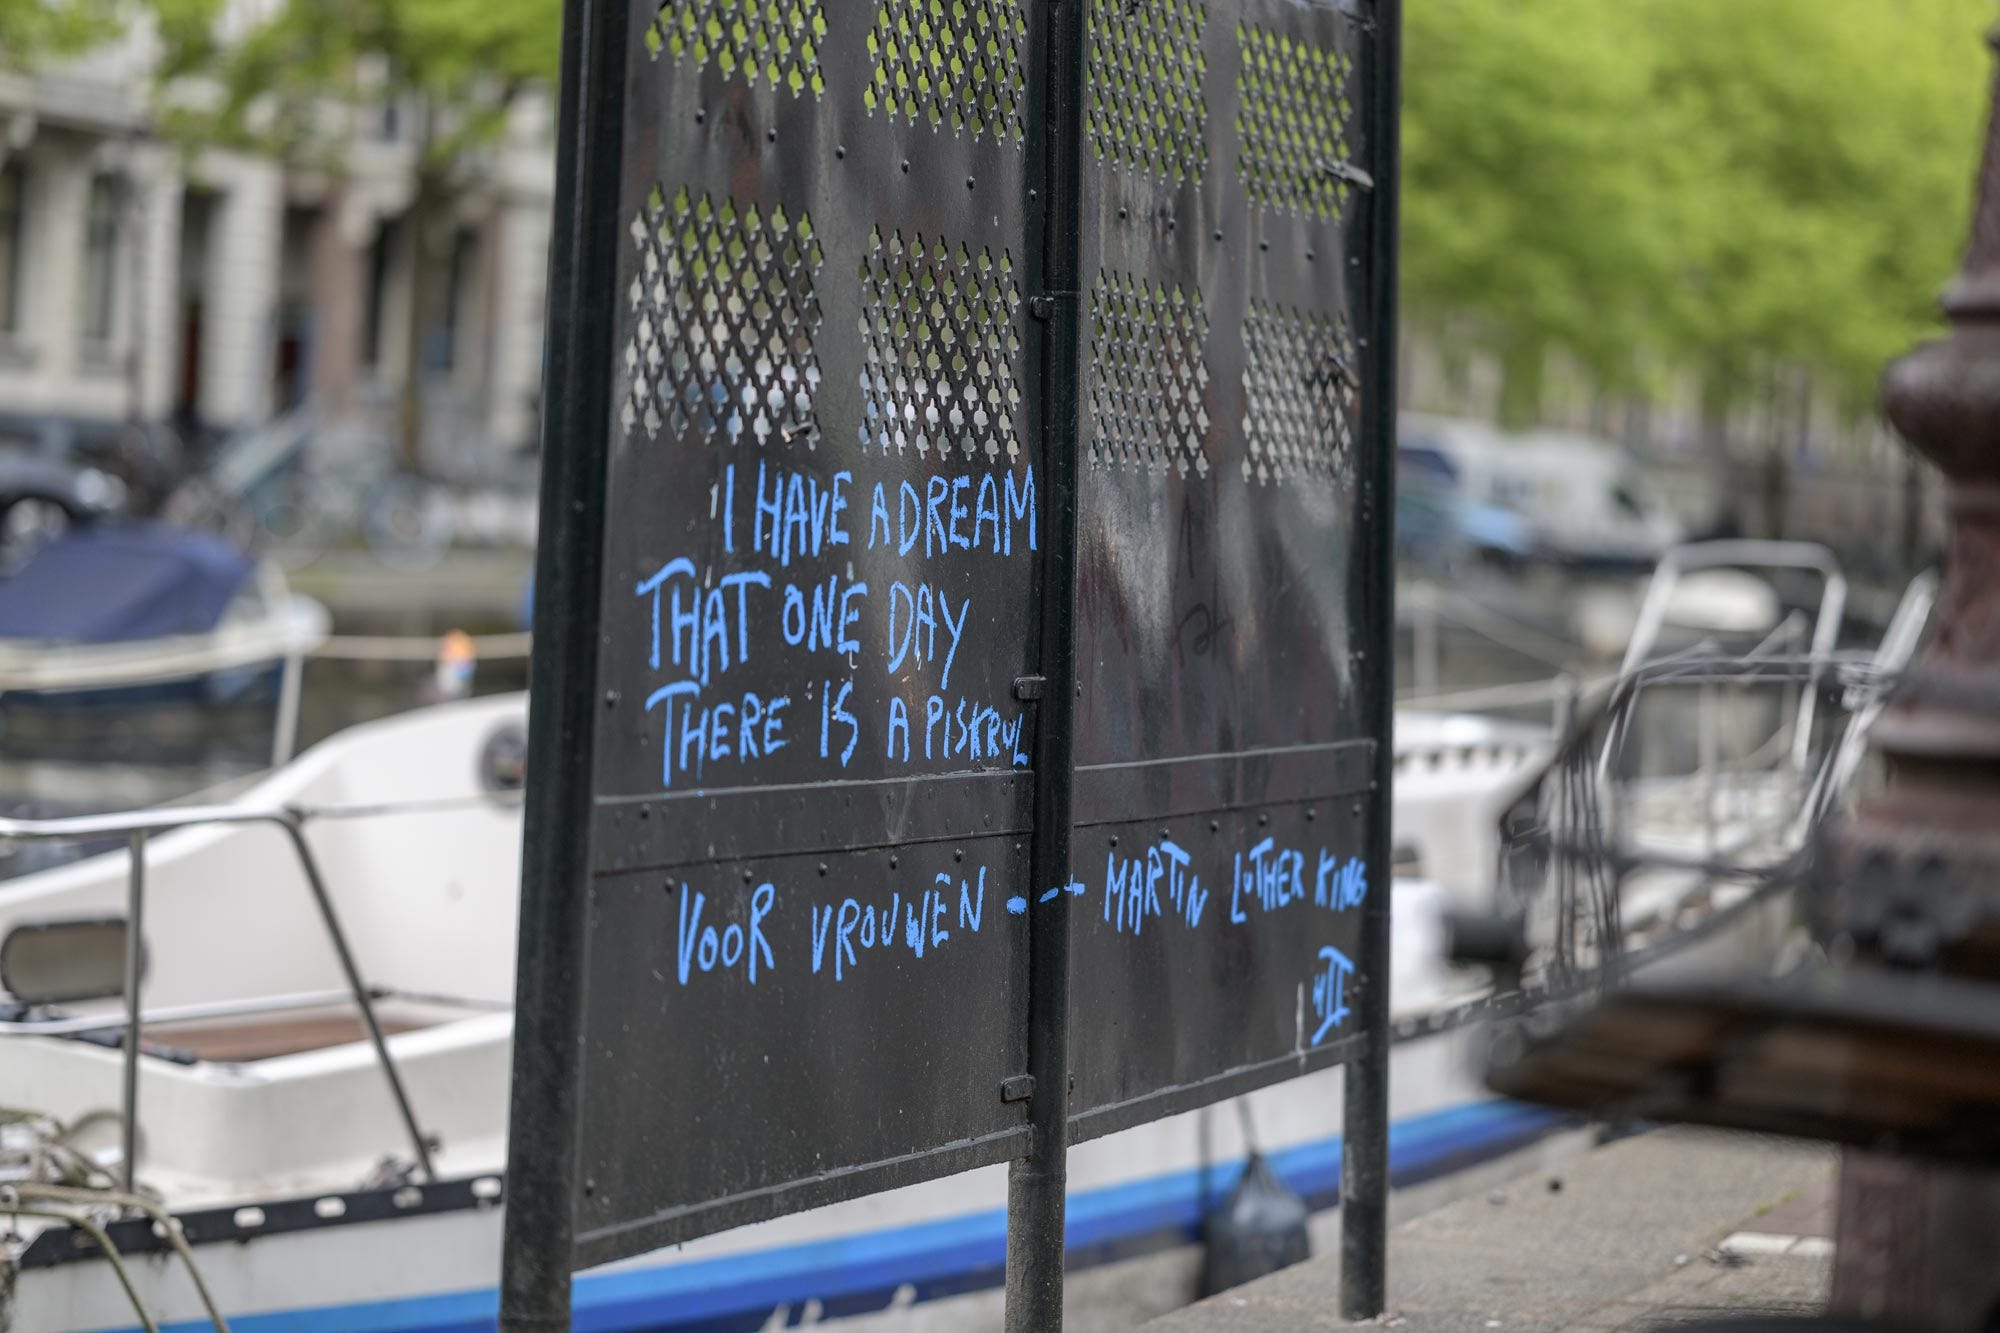 I HAVE A DREAM
THAT ONE DAY
THERE IS A PISKRUL
VOOR VROUWEN --- MARTIN LUTHER KING